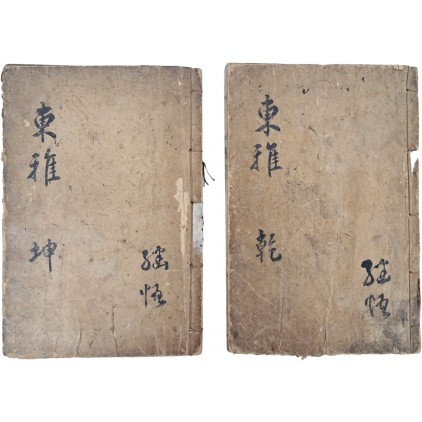 東雅 乾
悟
東雅 坤
悟